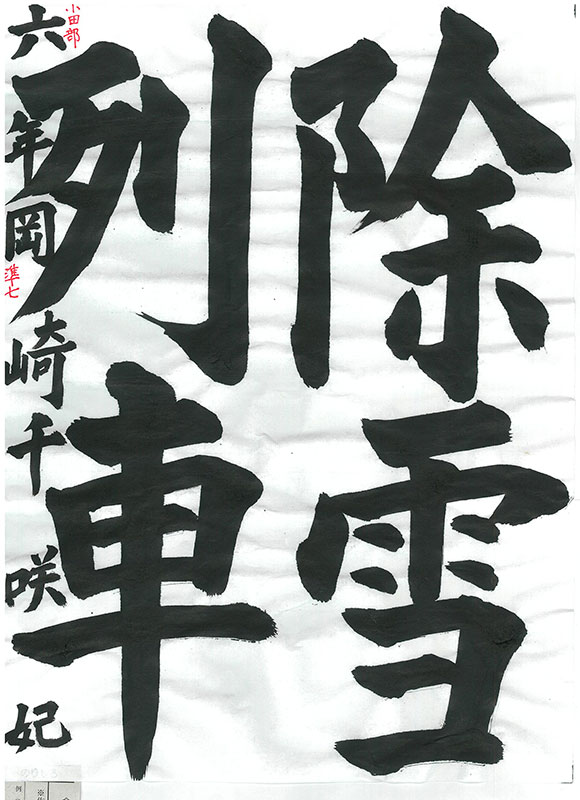 除雪
列車
六年岡崎千咲妃
小田部
準七
のりしろ